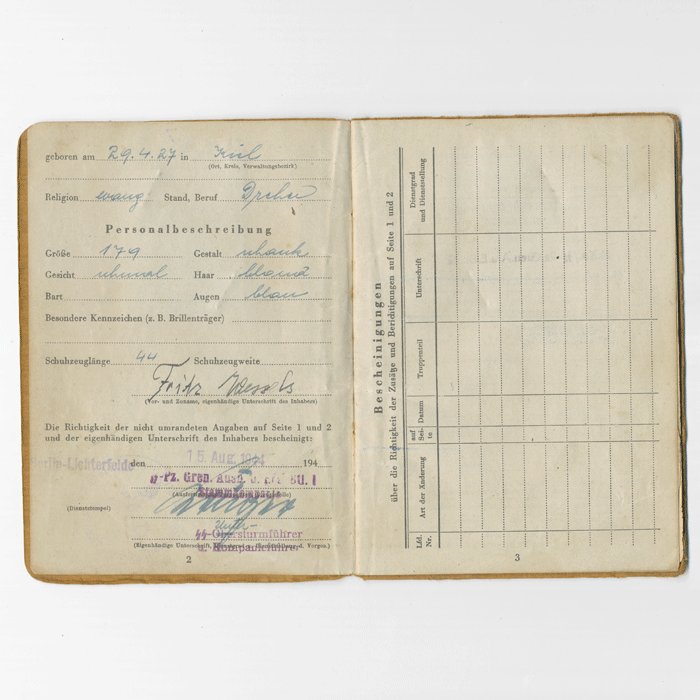 geboren am 29.4.27 in Kiel
(Ort, Kreis, Verwaltungsbezirk)
Religion evang Stand, Beruf Dreher
Personalbeschreibung
Größe 179 Gestalt schlank
Gesicht schmal Haar blond
Bart Augen blau
Besondere Kennzeichen (z. B. Brillenträger)
Schuhzeuglänge 44 Schuhzeugweite
Fritz
(Vor- und Zuname, eigenhändige Unterschrift des Inhabers)
Die Richtigkeit der nicht umrandeten Angaben auf Seite 1 und 2
und der eigenhändigen Unterschrift des Inhabers bescheinigt:
Berlin-Lichterfelde den 15. Aug. 1944 194
SS-Pz. Gren. Ausb. u. Ers. Btl. 1
(Dienststempel)
SS-Obersturmführer
u. Kompanieführer
2
Bescheinigungen
über die Richtigkeit der Zusätze und Berichtigungen auf Seite 1 und 2
Lfd. Nr.
Art der Änderung
auf Sei- te
Datum
Truppenteil
Unterschrift
Dienstgrad und Dienststellung
3